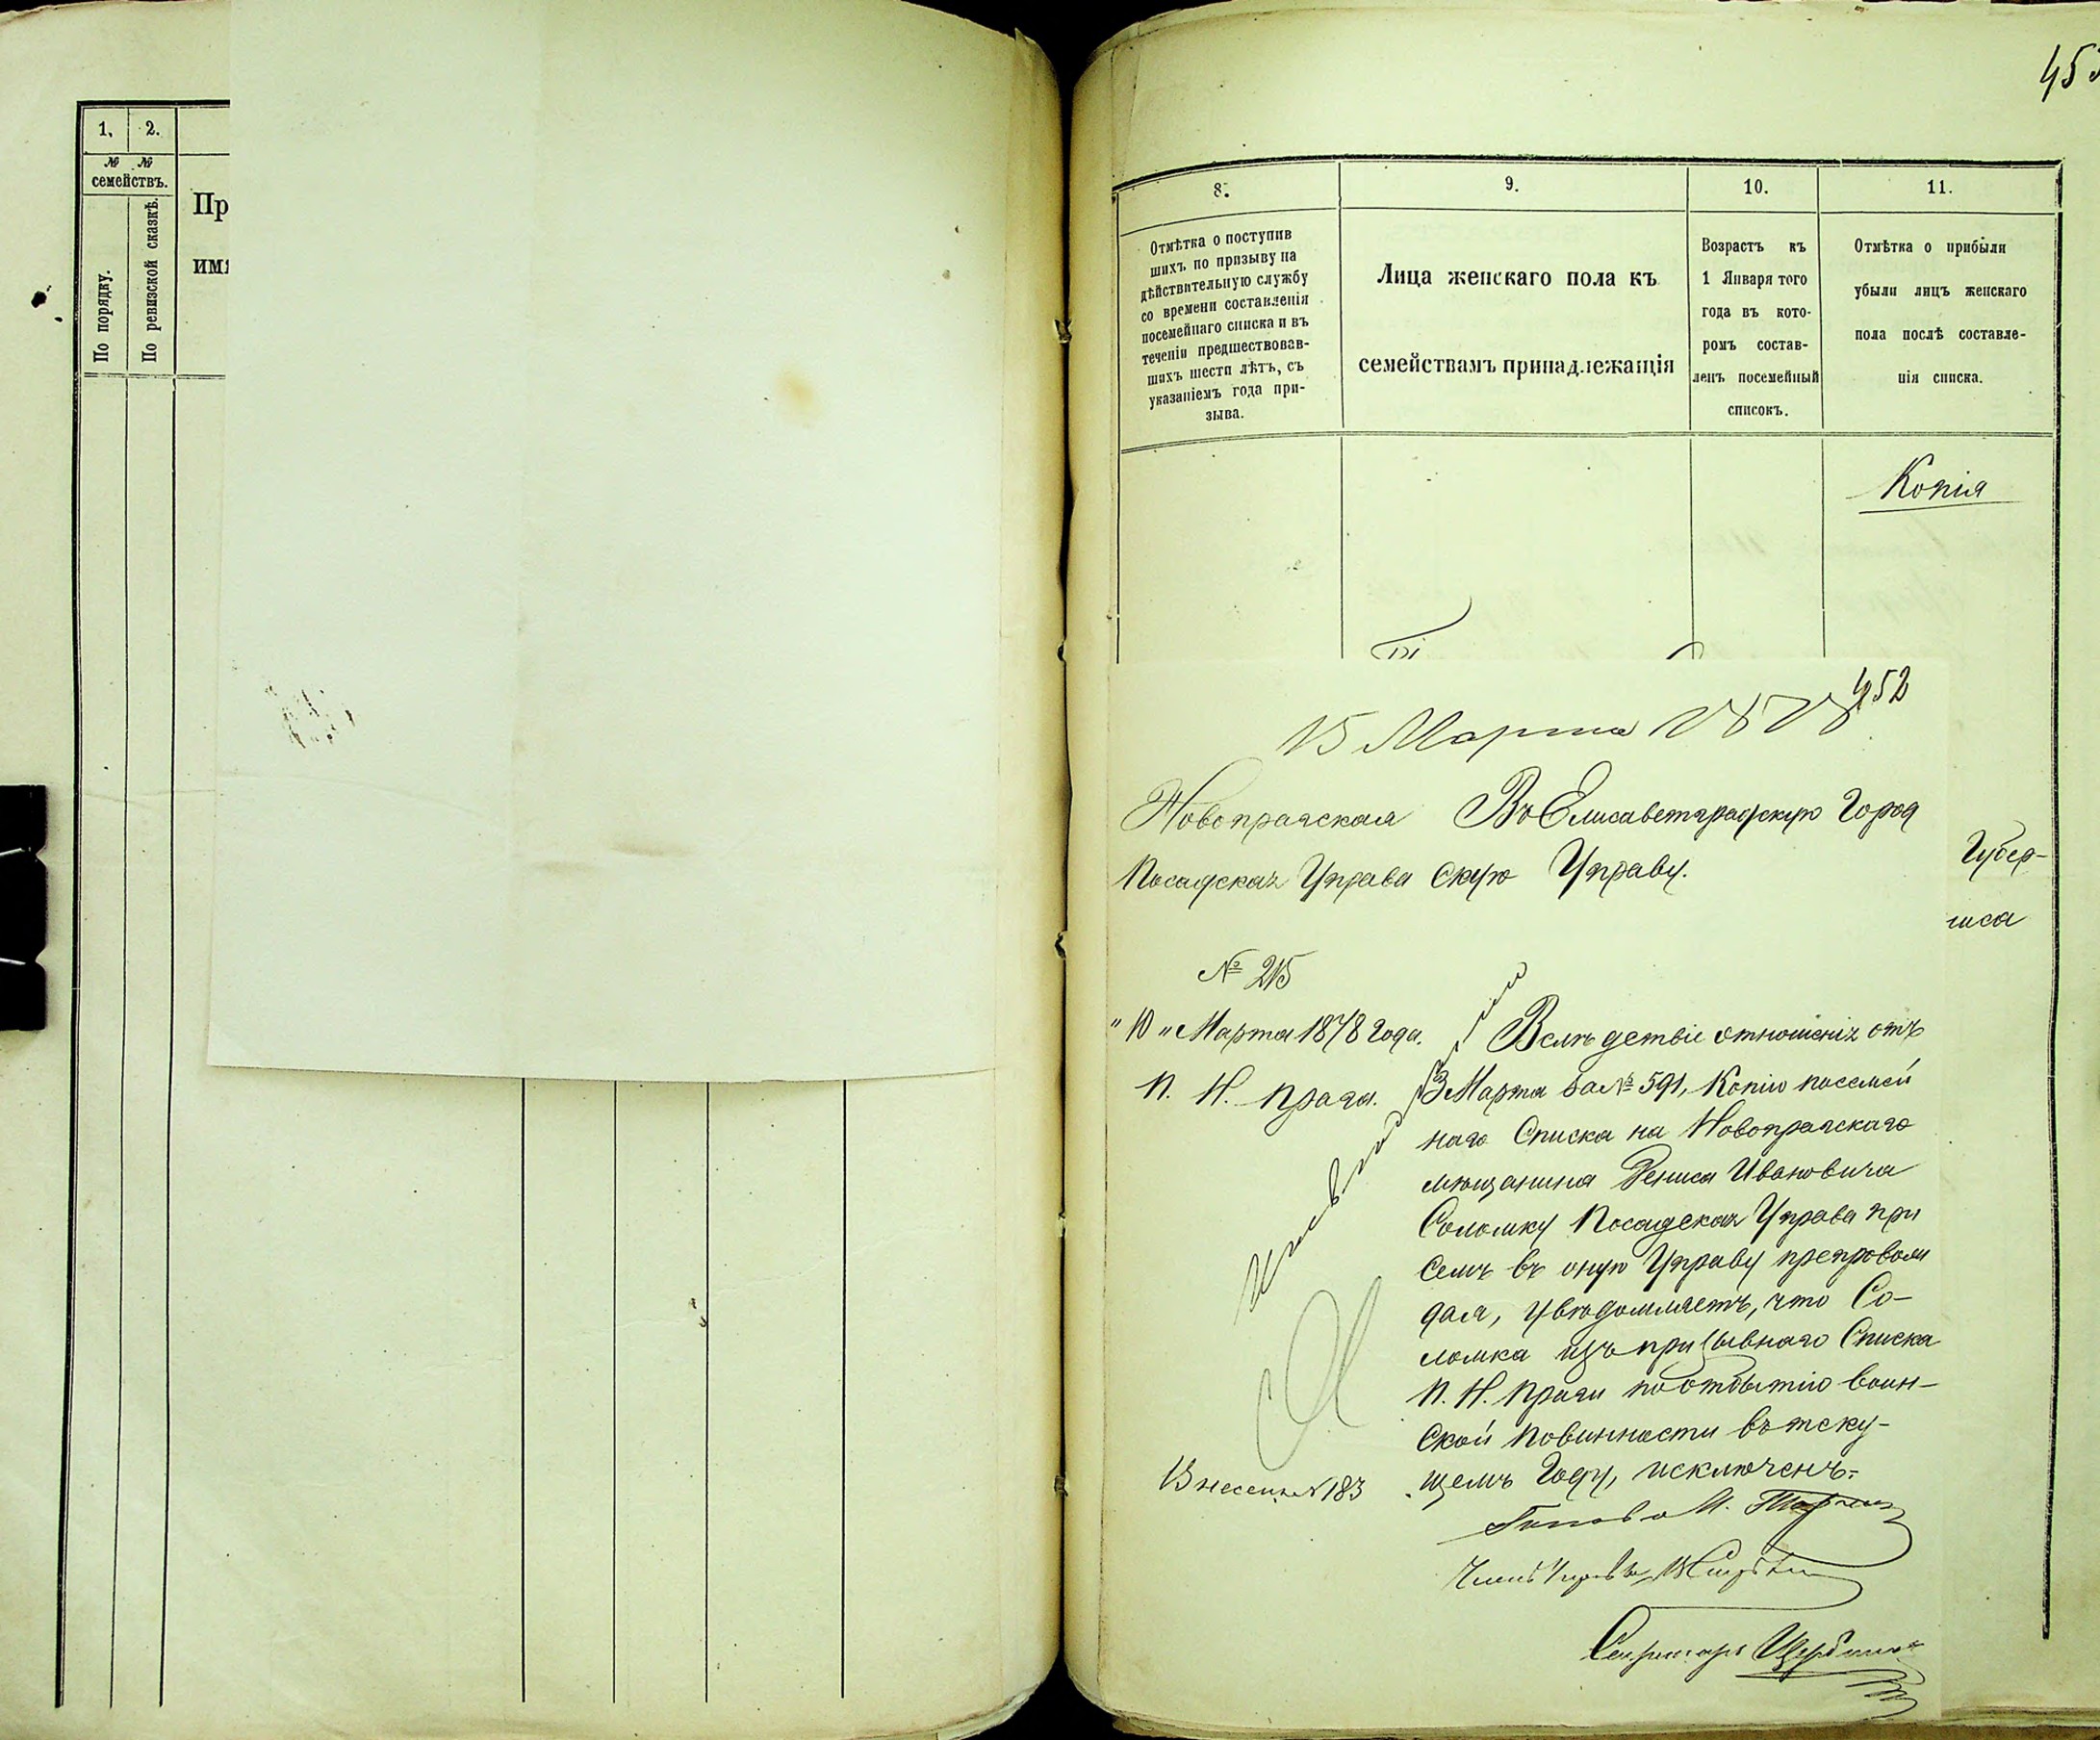 1.
2.
№ №
семействъ.
По порядку.
По ревизской сказкѣ.
Пр
им
453
8.
9.
10.
11.
Отмѣтка о поступив
шихъ по призыву на
дѣйствительную службу
со времени составленія
посемейнаго списка и въ
теченіи предшествовав-
шихъ шести лѣтъ, съ
указаніемъ года при-
зыва.
Лица женскаго пола къ
семействамъ принадлежащія
Возрастъ къ
1 Января того
года въ кото-
ромъ состав-
ленъ посемейный
списокъ.
Отмѣтка о прибыли
убыли лицъ женскаго
пола послѣ составле-
нія списка.
Копія
452
15 Марта 1878
Новопражская
Посадская Управа
Въ Елисаветградскую Город
скую Управу.
Губер-
иса
№ 215
"10" Марта 1878 года.
П. Н. Прага.
Вслѣдствіе отношенія отъ
3 Марта за № 591, Копію посемей
наго Списка на Новопражскаго
мѣщанина Дениса Ивановича
Соломку Посадская Управа при
семъ въ оную Управу препровож
дая, увѣдомляетъ, что Со-
ломка изъ призывнаго Списка
П. Н. Праги по отбытію воин-
ской повинности въ теку-
щемъ Году, исключенъ.
183
Голова М.
Членъ Управы
Секретарь